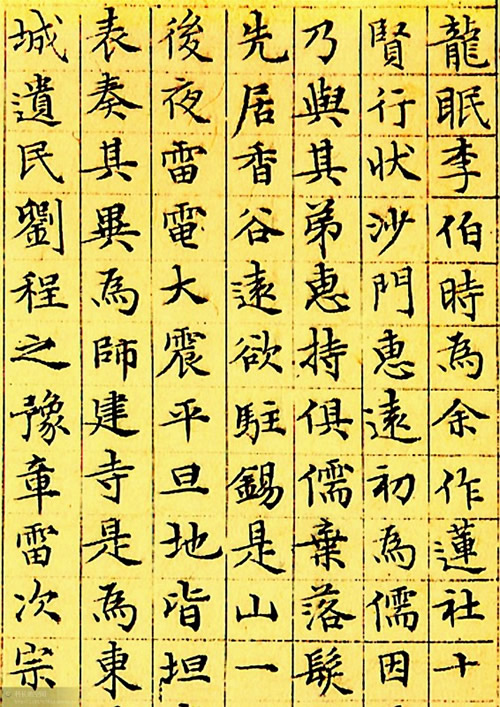 龍眠李伯時為余作蓮社十
賢行狀沙門惠遠初為儒因
乃與其弟惠持俱儒棄落髮
先居香谷遠欲駐錫是山一
後夜雷電大震平旦地皆坦
表奏其異為師建寺是為東
城遺民劉程之豫章雷次宗